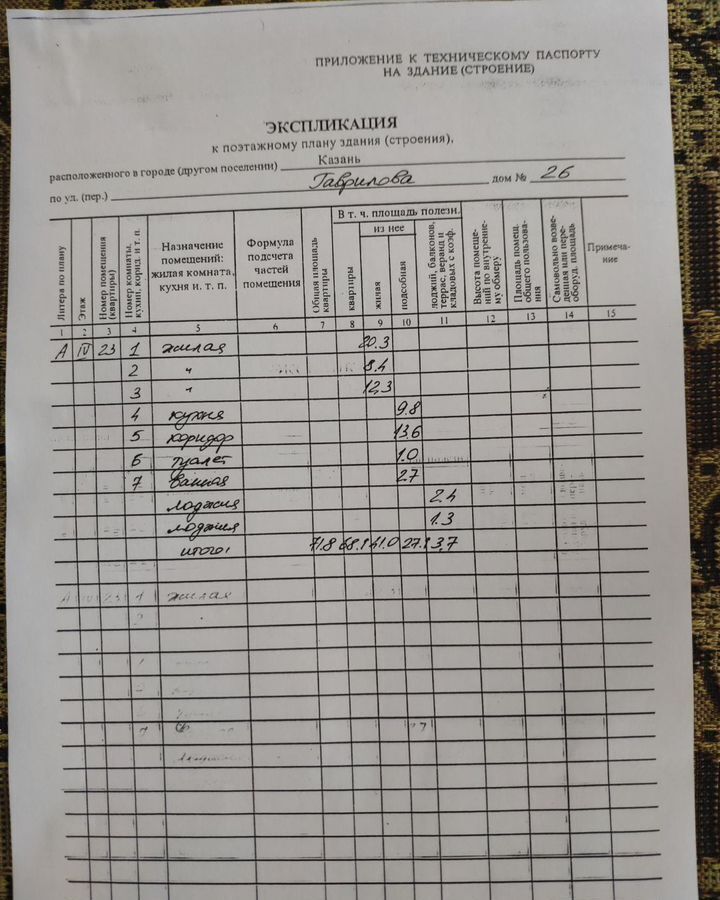 ПРИЛОЖЕНИЕ К ТЕХНИЧЕСКОМУ ПАСПОРТУ
НА ЗДАНИЕ (СТРОЕНИЕ)
ЭКСПЛИКАЦИЯ
к поэтажному плану здания (строения),
расположенного в городе (другом поселении) Казань
по ул. (пер.) Гаврилова дом № 26
Литера по плану
Этаж
Номер помещения (квартиры)
Номер комнаты, кухни, корид. и т. п.
Назначение помещений: жилая комната, кухня и. т. п.
Формула подсчета частей помещения
Общая площадь квартиры
В т. ч. площадь полезн.
квартиры
из нее
жилая
подсобная
лоджий, балконов, террас, веранд и кладовых с коэф.
Высота помещений по внутреннему обмеру
Площадь помещ. общего пользования
Самовольно возведенная или переоборуд. площадь
Примечание
1 2 3 4 5 6 7 8 9 10 11 12 13 14 15
А IV 23 1 жилая 20.3
2 " 8.4
3 " 12,3
4 кухня 9.8
5 коридор 13,6
6 туалет 1.0
7 ванная 2.7
лоджия 2.4
лоджия 1.3
итого: 71.8 68.1 41.0 27.1 3,7
А IV 23 1 жилая